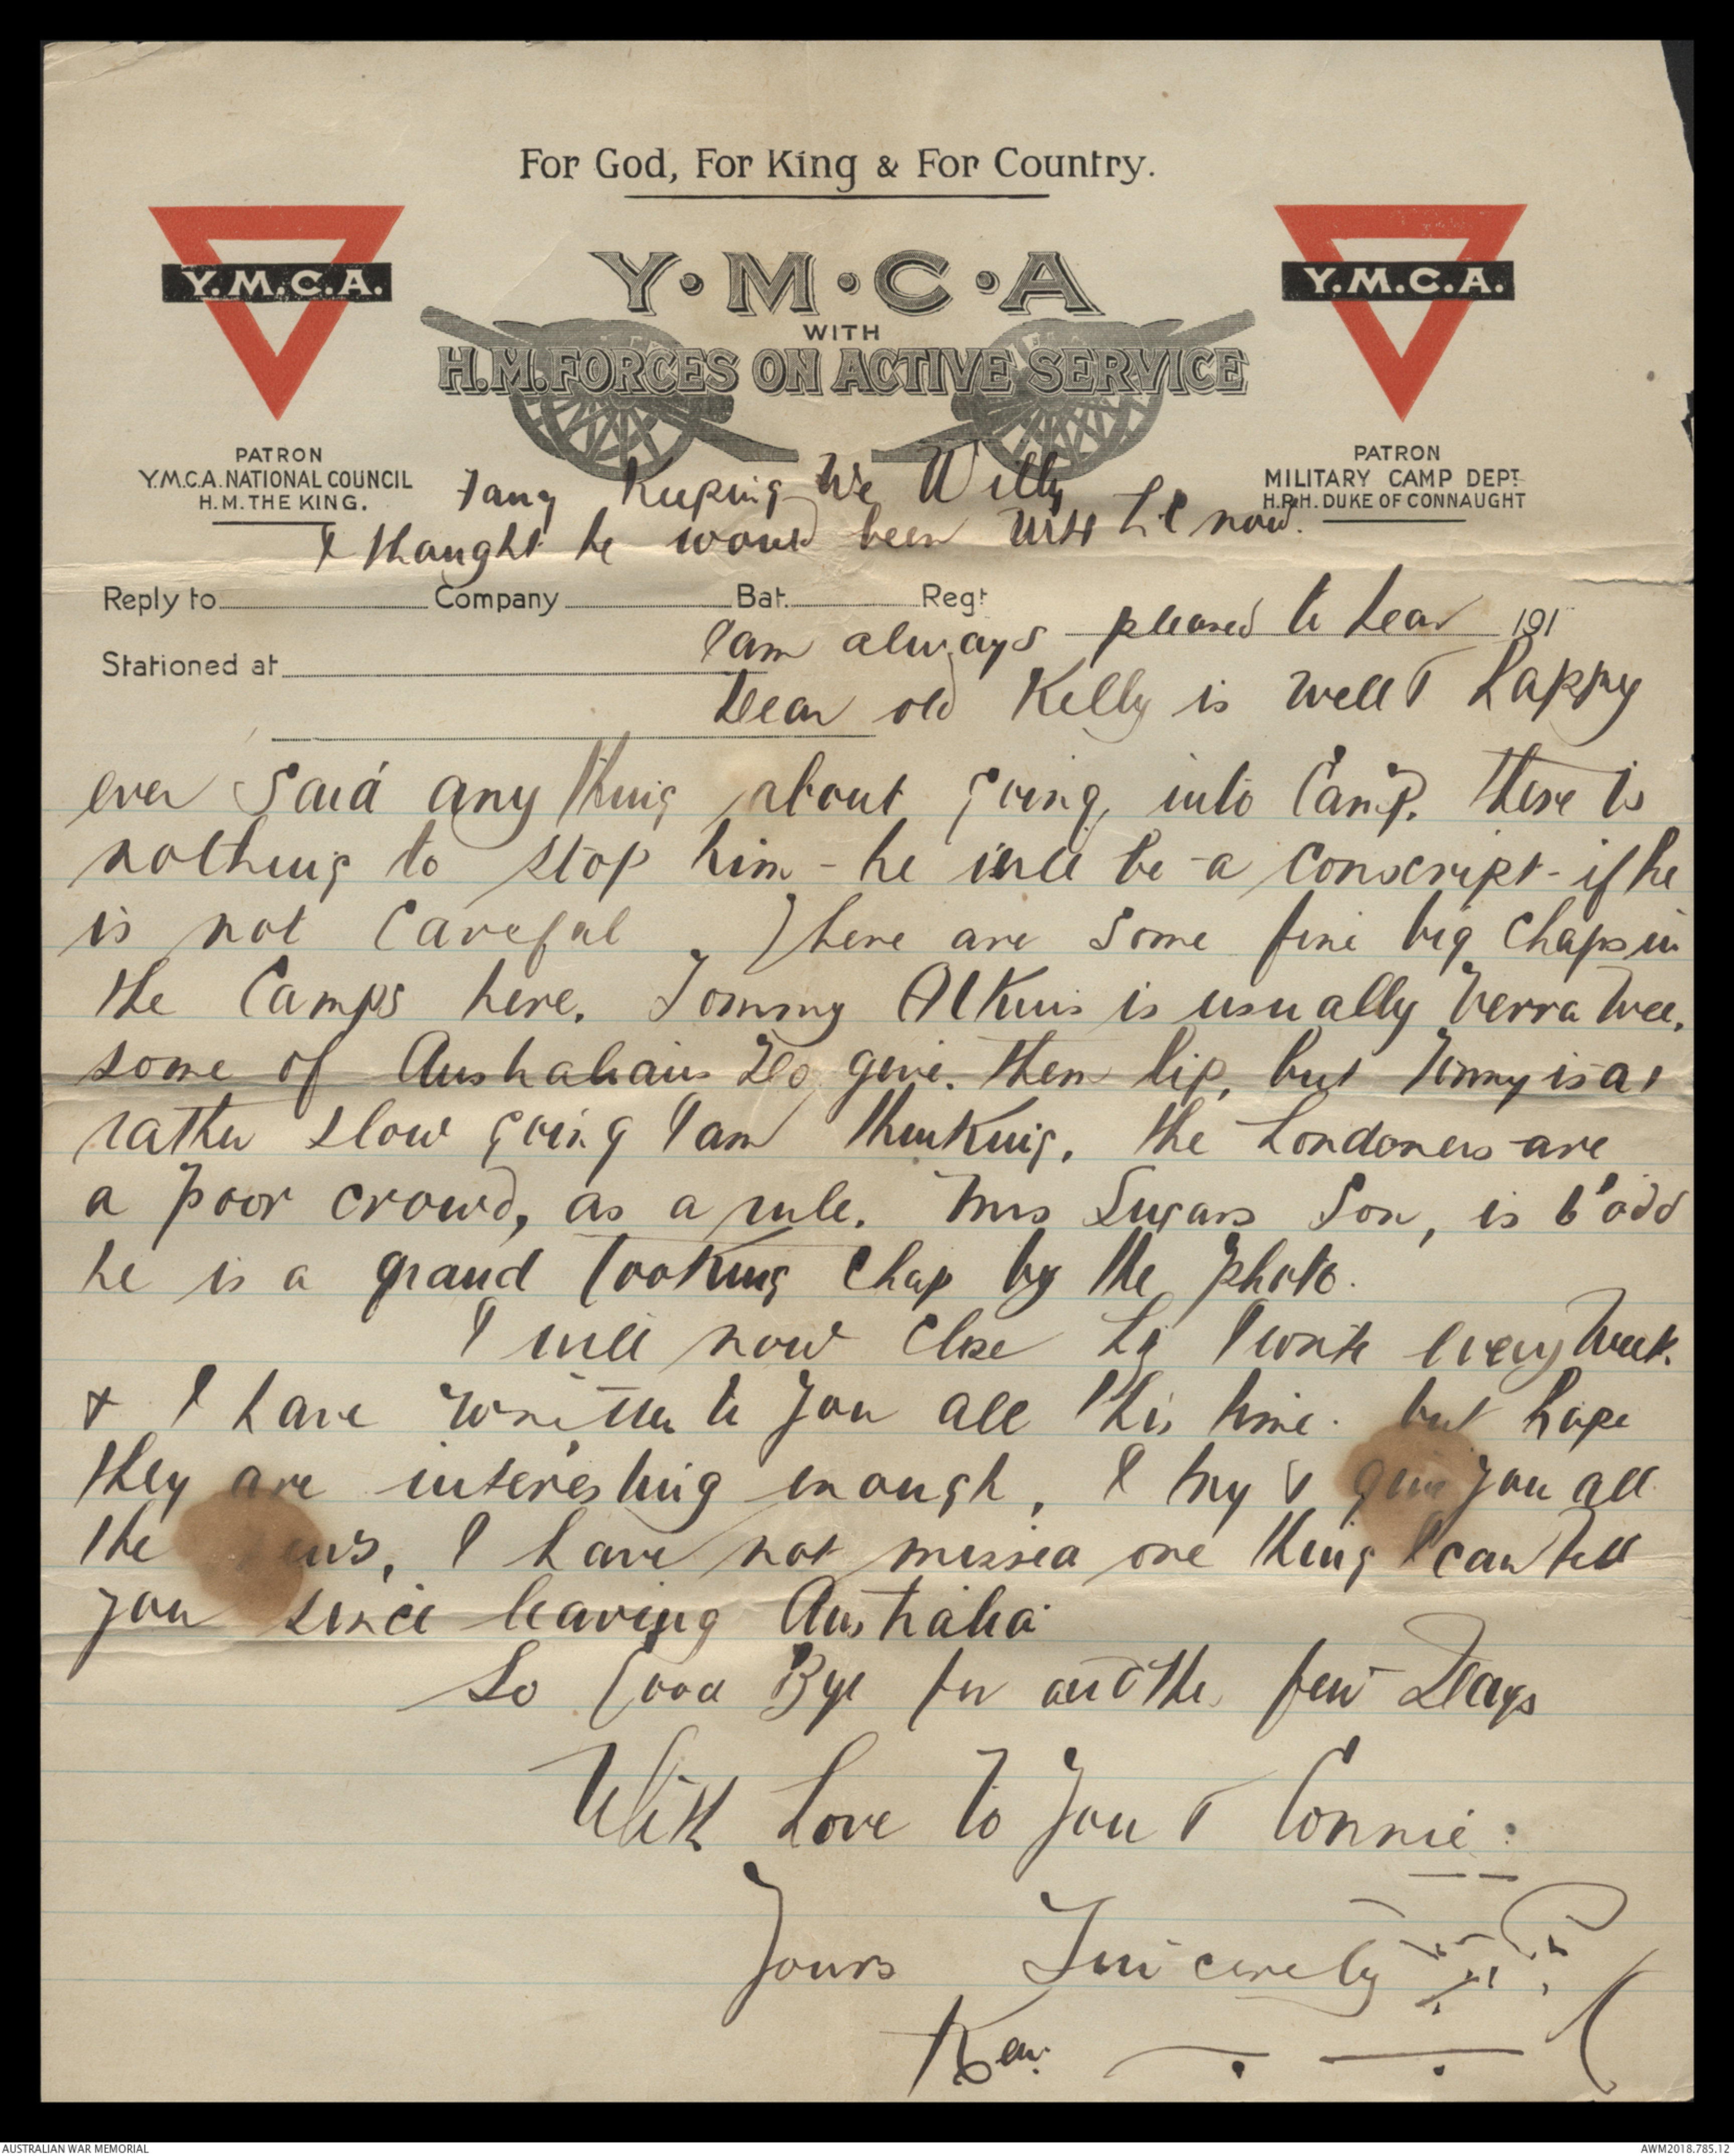 For God, For King & For Country.
Y.M.C.A.
Y.M.C.A.
Y·M·C·A
WITH
H.M. FORCES ON ACTIVE SERVICE
PATRON
Y.M.C.A. NATIONAL COUNCIL
H.M. THE KING.
PATRON
MILITARY CAMP DEPT.
H.R.H. DUKE OF CONNAUGHT
Fany Keeping We Willy
I thought he would been now.
Reply to Company Bat. Regt
I am always pleased to hear 191
Stationed at
Dear old Kelly is well & happy
ever said any thing about going into Camp. There is
nothing to stop him - he will be a conscript - if he
is not careful. There are some fine big chaps in
the Camps here. Tommy Atkins is usually verra wee.
some of Australians do give them lip, but Tommy is a
rather slow going I am thinking. The Londoners are
a poor crowd, as a rule. Mrs Sugars Son, is 6' odd
he is a grand looking chap by the photo.
I will now close I write every week.
& I have written to you all this time. but hope
they are interesting enough, I try & give you all
the news, I have not missed one thing I can tell
you since leaving Australia
So Good Bye for another few Days
With Love to You & Connie.
Yours Sincerely
Ken.
AUSTRALIAN WAR MEMORIAL
AWM2018.785.12